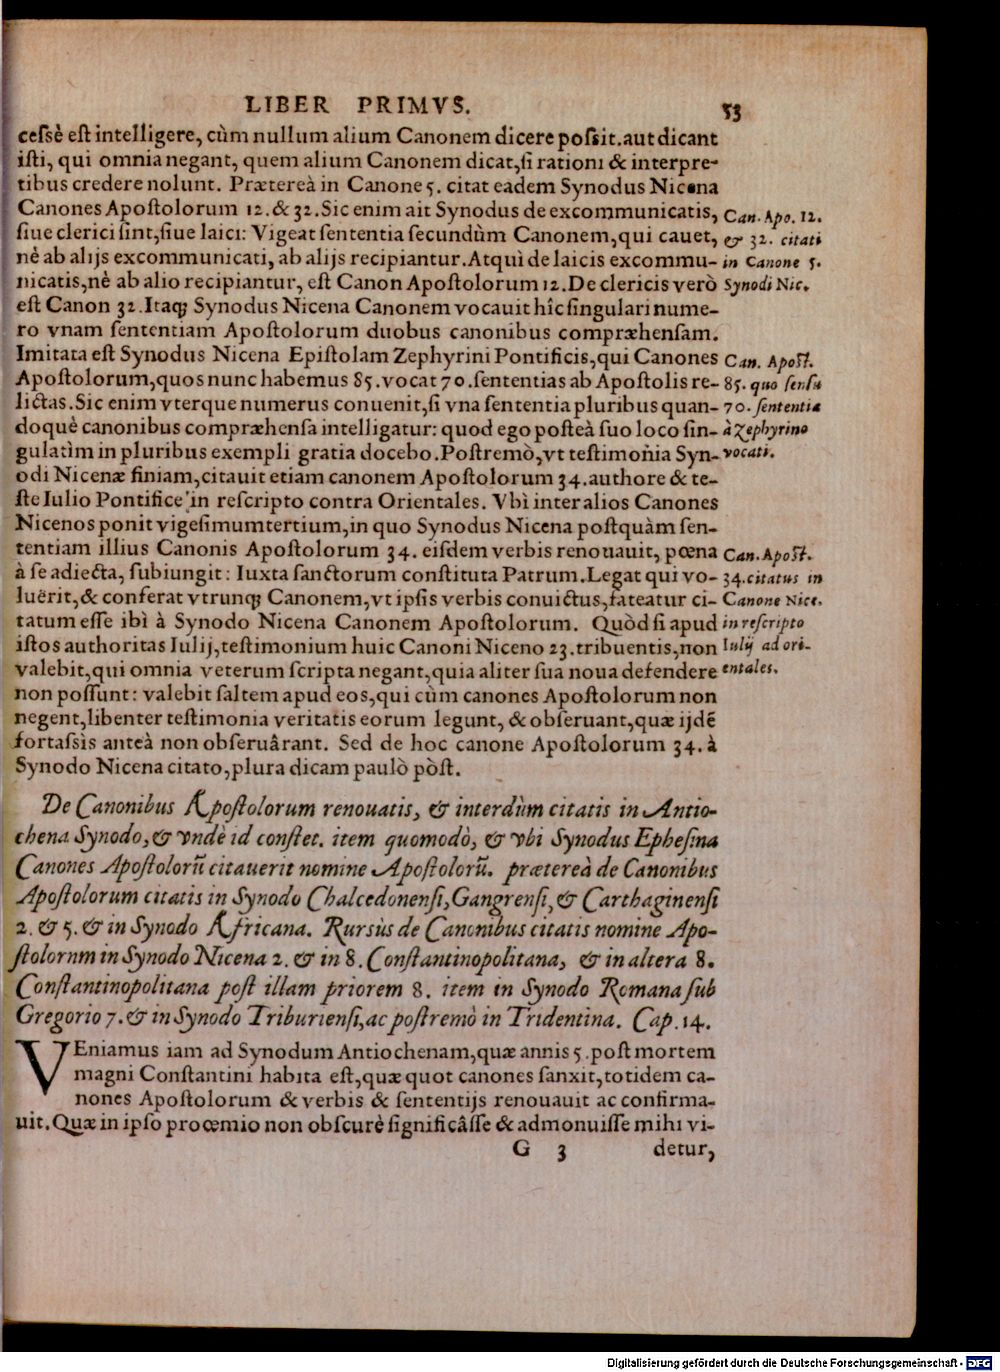 LIBER PRIMVS. 53
cessè est intelligere, cùm nullum alium Canonem dicere possit. aut dicant
isti, qui omnia negant, quem alium Canonem dicat, si rationi & interpre-
tibus credere nolunt. Prætereà in Canone 5. citat eadem Synodus Nicena
Canones Apostolorum 12. & 32. Sic enim ait Synodus de excommunicatis,
siue clerici sint, siue laici: Vigeat sententia secundùm Canonem, qui cauet,
nè ab alijs excommunicati, ab alijs recipiantur. Atquì de laicis excommu-
nicatis, nè ab alio recipiantur, est Canon Apostolorum 12. De clericis verò
est Canon 32. Itaq; Synodus Nicena Canonem vocauit hîc singulari nume-
ro vnam sententiam Apostolorum duobus canonibus compræhensam.
Imitata est Synodus Nicena Epistolam Zephyrini Pontificis, qui Canones
Apostolorum, quos nunc habemus 85. vocat 70. sententias ab Apostolis re-
lictas. Sic enim vterque numerus conuenit, si vna sententia pluribus quan-
doquè canonibus compræhensa intelligatur: quod ego posteà suo loco sin-
gulatìm in pluribus exempli gratia docebo. Postremò, vt testimonia Syn-
odi Nicenæ finiam, citauit etiam canonem Apostolorum 34. authore & te-
ste Iulio Pontifice in rescripto contra Orientales. Vbì inter alios Canones
Nicenos ponit vigesimumtertium, in quo Synodus Nicena postquàm sen-
tentiam illius Canonis Apostolorum 34. eisdem verbis renouauit, pœna
à se adiecta, subiungit: Iuxta sanctorum constituta Patrum. Legat qui vo-
luërit, & conferat vtrunq; Canonem, vt ipsis verbis conuictus, fateatur ci-
tatum esse ibì à Synodo Nicena Canonem Apostolorum. Quòd si apud
istos authoritas Iulij, testimonium huic Canoni Niceno 23. tribuentis, non
valebit, qui omnia veterum scripta negant, quia aliter sua noua defendere
non possunt: valebit saltem apud eos, qui cùm canones Apostolorum non
negent, libenter testimonia veritatis eorum legunt, & obseruant, quæ ijdē
fortassìs anteà non obseruârant. Sed de hoc canone Apostolorum 34. à
Synodo Nicena citato, plura dicam paulò pòst.
Can. Apo. 12.
& 32. citati
in Canone 5.
Synodi Nic.
Can. Apost.
85. quo sensu
70. sententiæ
à Zephyrino
vocati.
Can. Apost.
34. citatus in
Canone Nice.
in rescripto
Iulij ad ori-
entales.
De Canonibus Apostolorum renouatis, & interdùm citatis in Antio-
chena Synodo, & vndè id constet. item quomodò, & vbi Synodus Ephesina
Canones Apostolorū citauerit nomine Apostolorū. prætereà de Canonibus
Apostolorum citatis in Synodo Chalcedonensi, Gangrensi, & Carthaginensi
2. & 5. & in Synodo Africana. Rursùs de Canonibus citatis nomine Apo-
stolornm in Synodo Nicena 2. & in 8. Constantinopolitana, & in altera 8.
Constantinopolitana post illam priorem 8. item in Synodo Romana sub
Gregorio 7. & in Synodo Triburiensi, ac postremò in Tridentina. Cap. 14.
VEniamus iam ad Synodum Antiochenam, quæ annis 5. post mortem
magni Constantini habita est, quæ quot canones sanxit, totidem ca-
nones Apostolorum & verbis & sententijs renouauit ac confirma-
uit. Quæ in ipso proœmio non obscurè significâsse & admonuisse mihi vi-
G 3 detur,
Digitalisierung gefördert durch die Deutsche Forschungsgemeinschaft - DFG